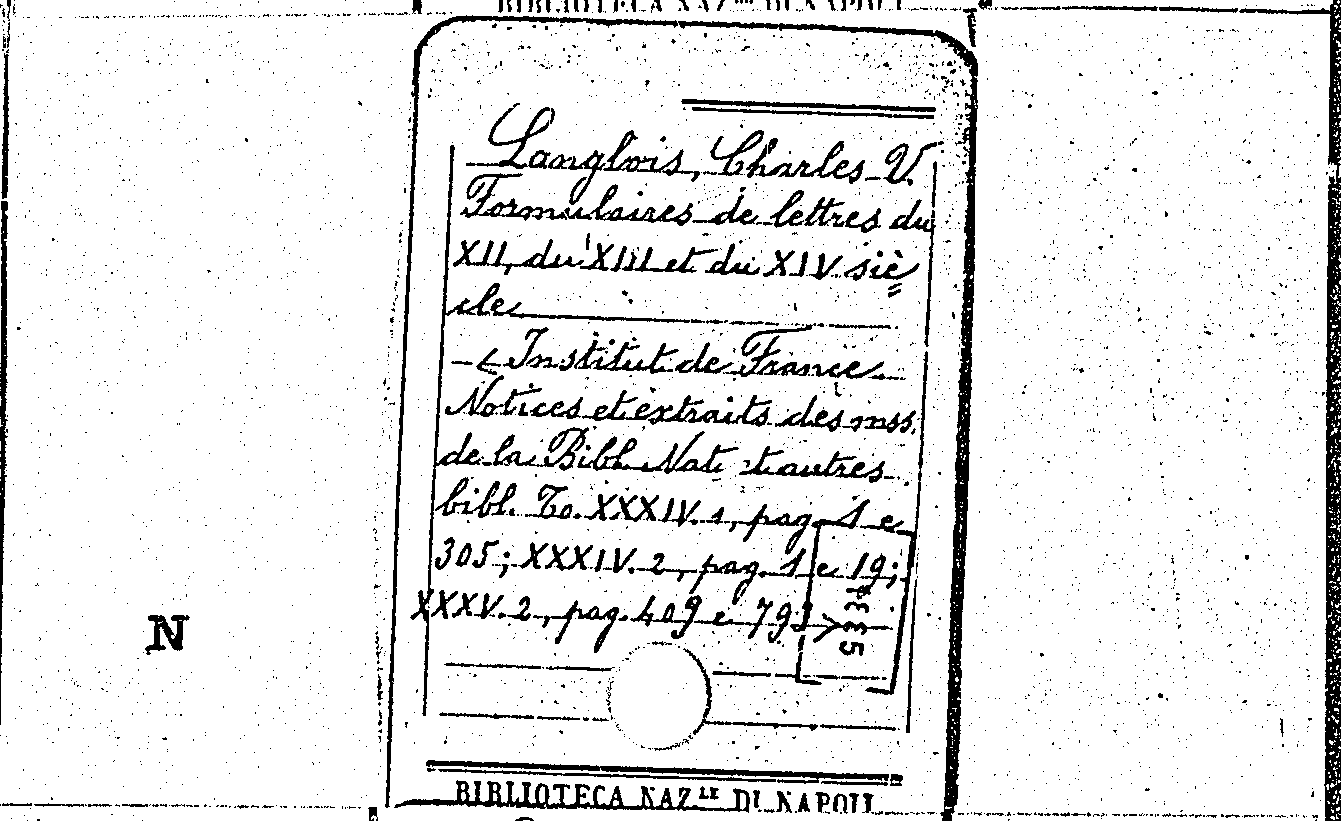 BIBLIOTECA NAZ.LE DI NAPOLI
Langlois, Charles V.
Formulaires de lettres du
XII, du XIII et du XIV siè=
cle
-< Institut de France.
Notices et extraits des mss.
de la Bibl. Nat. et autres
bibl. To. XXXIV. 1, pag. 1 e
305; XXXIV. 2, pag. 1 e 19;
XXXV. 2, pag. 409 e 793 >
N
BIBLIOTECA NAZ.LE DI NAPOLI